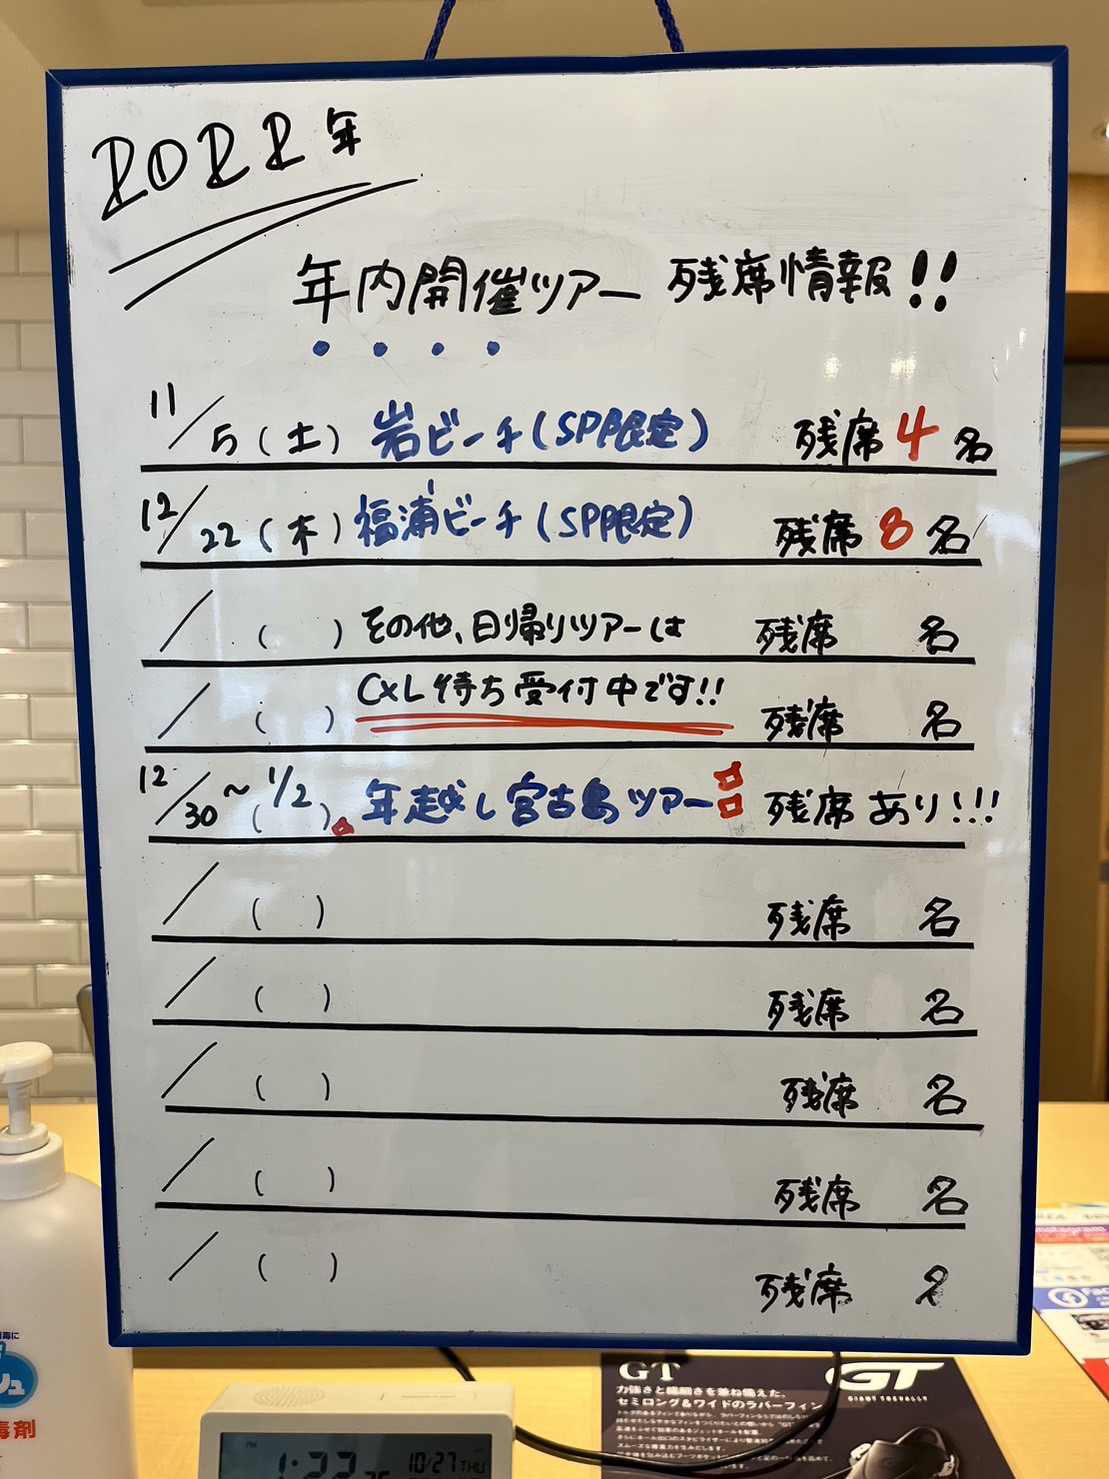 2022年
年内開催ツアー 残席情報!!
11/5(土) 岩ビーチ(SP限定) 残席4名
12/22(木) 福浦ビーチ(SP限定) 残席8名
/ ( ) その他、日帰りツアーは 残席 名
/ ( ) CXL待ち受付中です!! 残席 名
12/30~1/2( ) 年越し宮古島ツアー 残席あり!!!
/ ( ) 残席 名
/ ( ) 残席 名
/ ( ) 残席 名
/ ( ) 残席 名
/ ( ) 残席 名
GT
力強さと繊細さを兼ね備えた、
セミロング&ワイドのラバーフィン
GT
GIANT TREVALLY
1:22
10/27 THU
毒剤